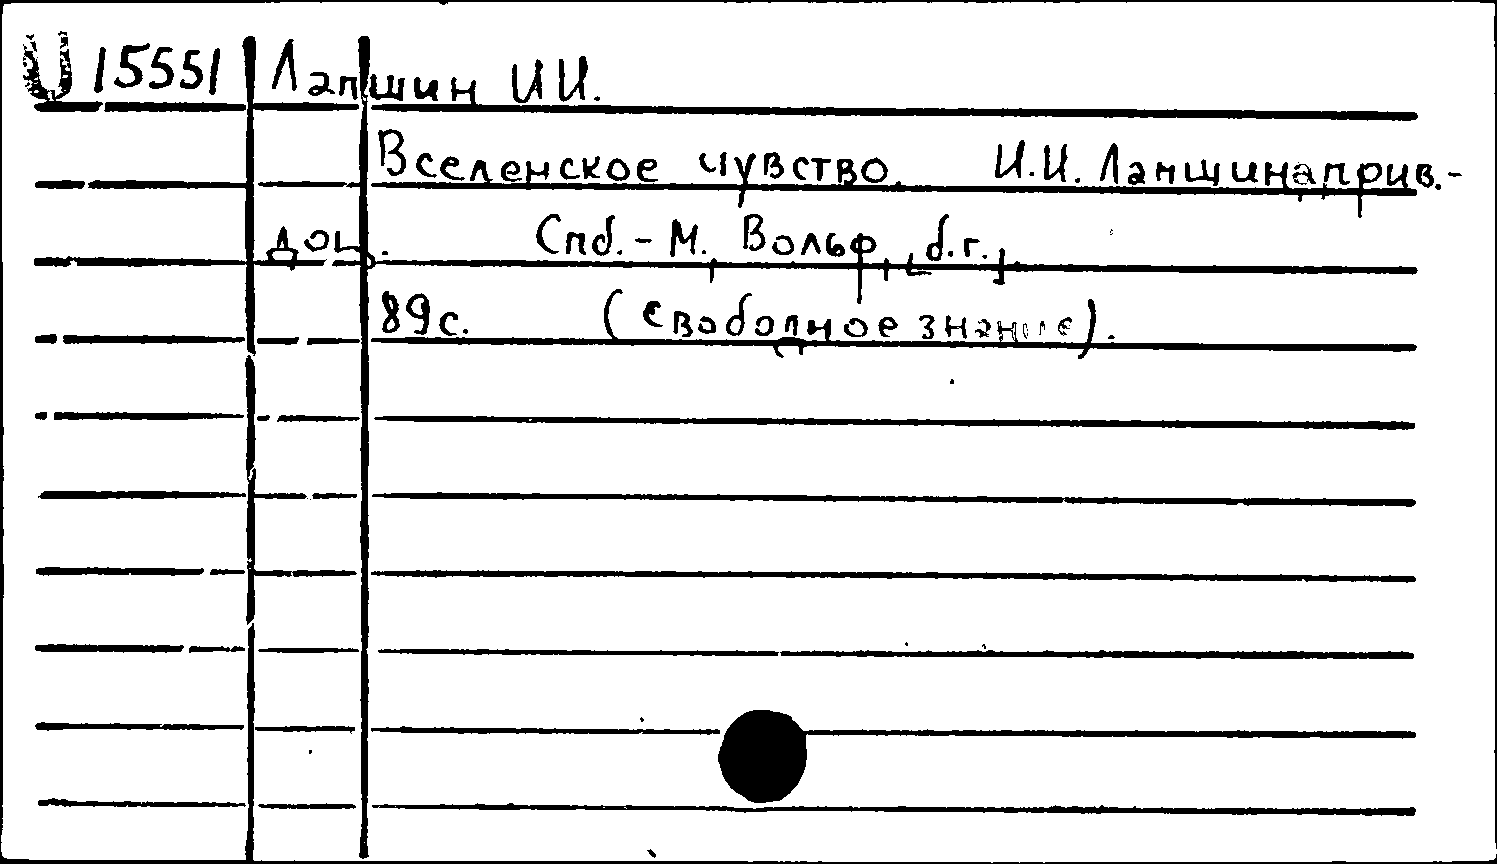 U 15551 Лапшин И И.
Вселенское чувство. И.И. Лапшина, прив.-
доц. Спб.-М., Вольф, [б.г.]
89с. (Свободное знание).